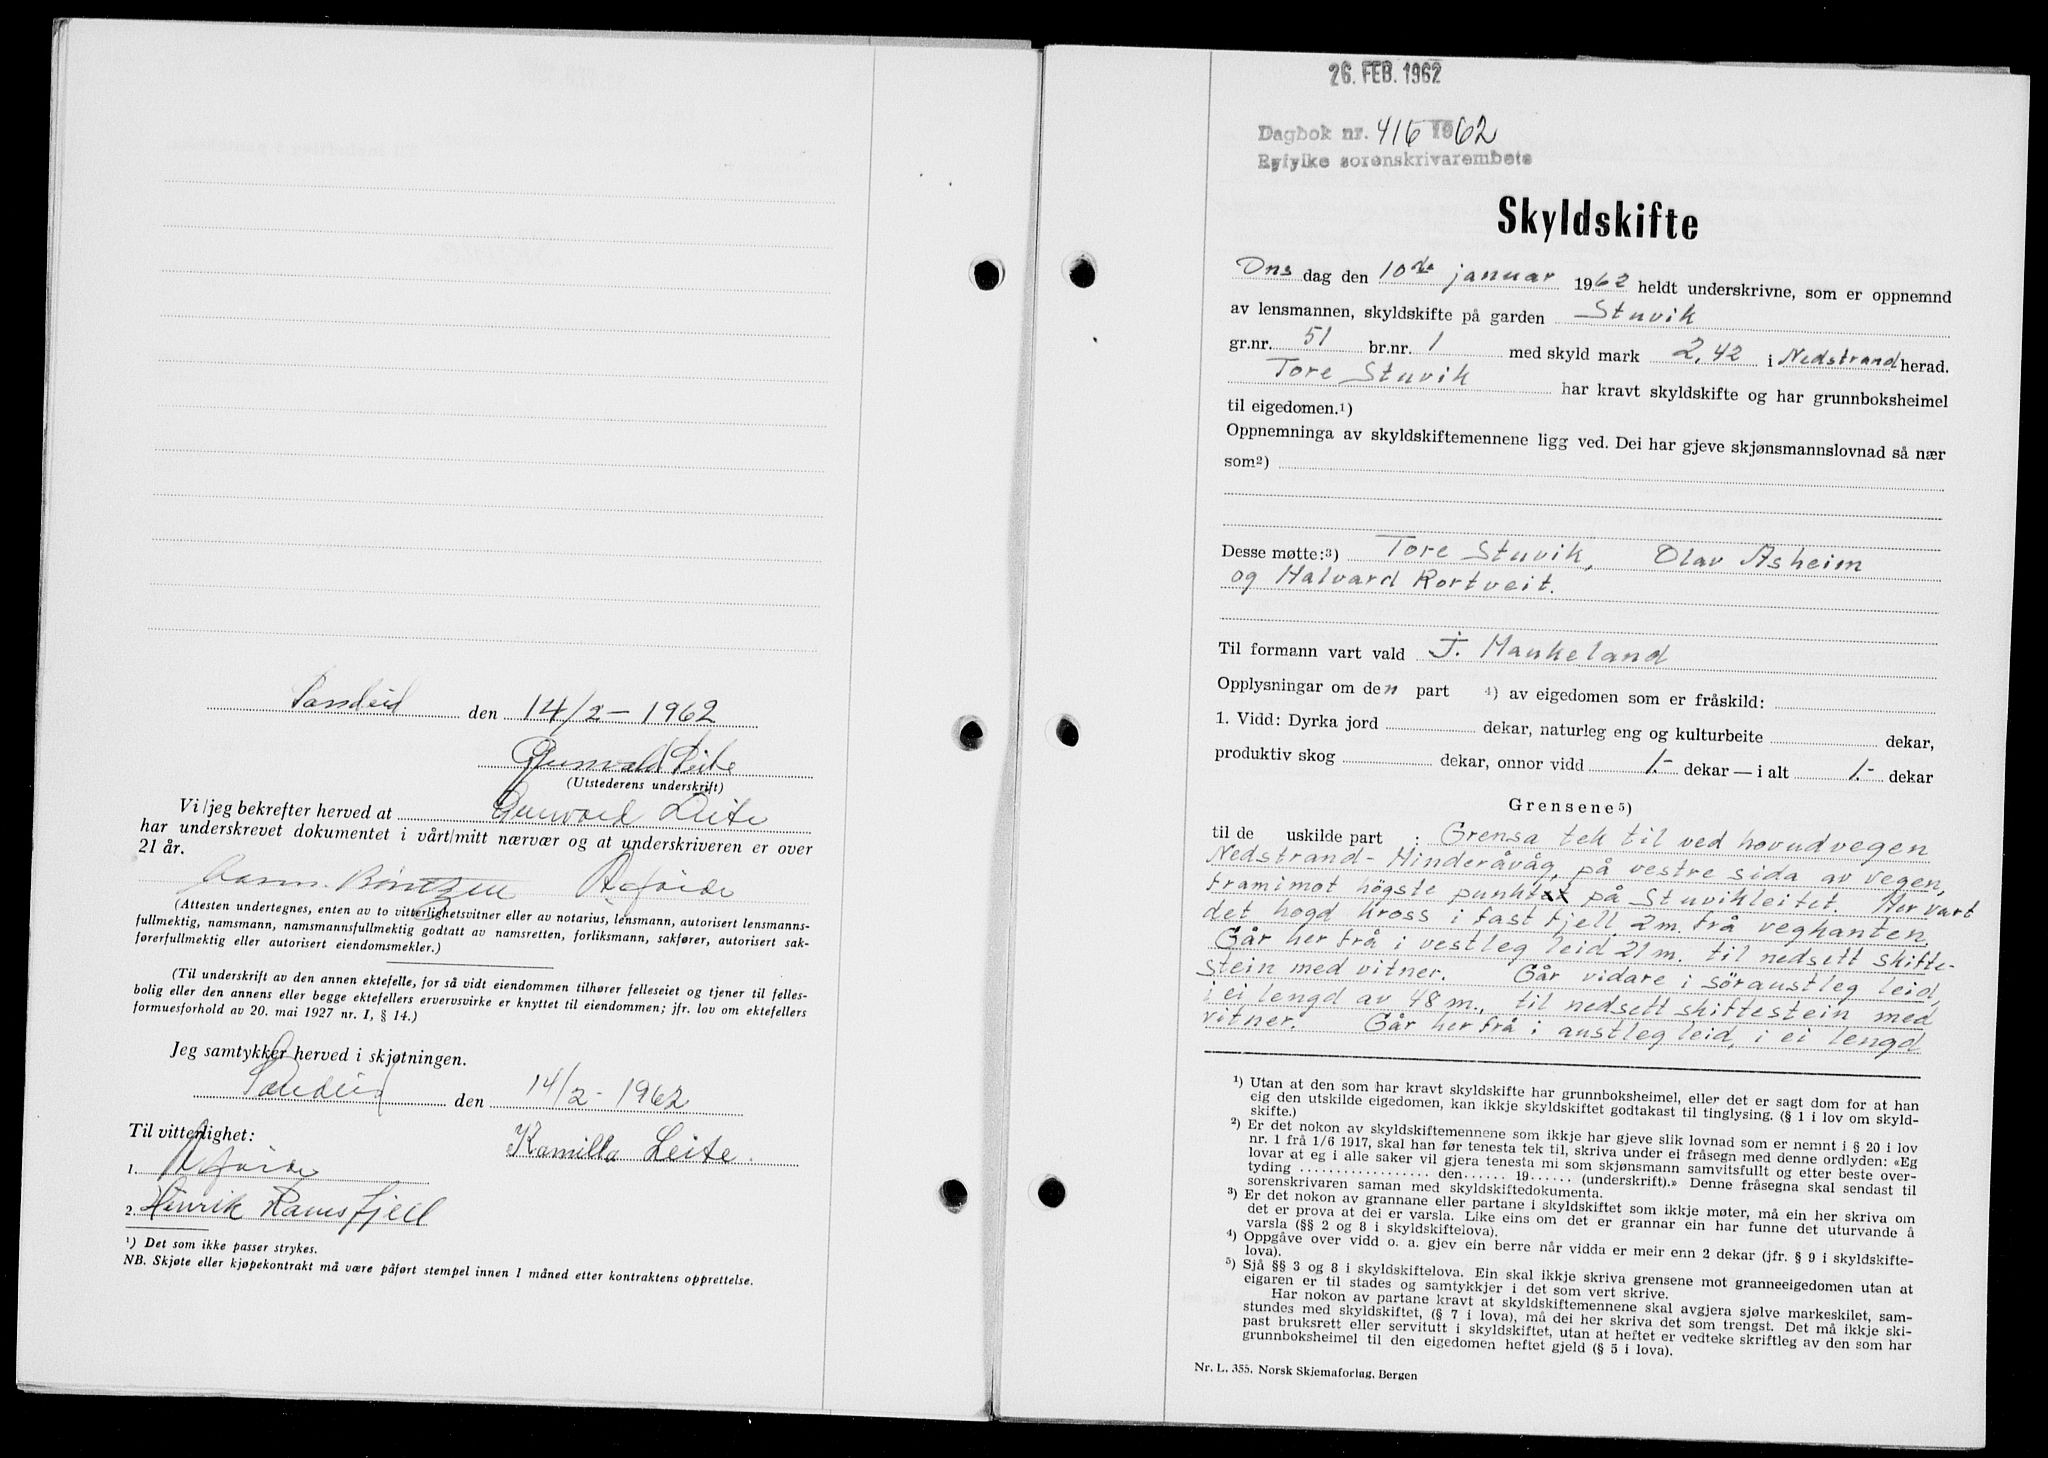 Sandeid den 14/2 - 1962
Gunvald Leite
(Utstederens underskrift)
Vi/jeg bekrefter herved at Gunvald Leite
har underskrevet dokumentet i vårt/mitt nærvær og at underskriveren er over
21 år.
(Attesten undertegnes, enten av to vitterlighetsvitner eller av notarius, lensmann, autorisert lensmanns-
fullmektig, namsmann, namsmannsfullmektig godtatt av namsretten, forliksmann, sakfører, autorisert sak-
førerfullmektig eller autorisert eiendomsmekler.)
(Til underskrift av den annen ektefelle, for så vidt eiendommen tilhører felleseiet og tjener til felles-
bolig eller den annens eller begge ektefellers ervervsvirke er knyttet til eiendommen; jfr. lov om ektefellers
formuesforhold av 20. mai 1927 nr. 1, § 14.)
Jeg samtykker herved i skjøtningen.
Sandeid den 14/2 - 1962
Til vitterlighet:
Kamilla Leite.
1.
2. Henrik Ramsfjell
¹) Det som ikke passer strykes.
NB. Skjøte eller kjøpekontrakt må være påført stempel innen 1 måned etter kontraktens opprettelse.
26. FEB. 1962
Dagbok nr. 416 1962
Ryfylke sorenskrivarembete
Skyldskifte
Ons dag den 10de januar 1962 heldt underskrivne, som er oppnemnd
av lensmannen, skyldskifte på garden Stuvik
gr.nr. 51 br.nr. 1 med skyld mark 2,42 i Nedstrand herad.
Tore Stuvik har kravt skyldskifte og har grunnboksheimel
til eigedomen.¹)
Oppnemninga av skyldskiftemennene ligg ved. Dei har gjeve skjønsmannslovnad så nær
som²)
Desse møtte:³) Tore Stuvik, Olav Asheim
og Halvard Rortveit.
Til formann vart vald J. Haukeland
Opplysningar om den part ⁴) av eigedomen som er fråskild:
1. Vidd: Dyrka jord dekar, naturleg eng og kulturbeite dekar,
produktiv skog dekar, onnor vidd 1.- dekar — i alt 1.- dekar
Grensene⁵)
til de uskilde part : Grensa tek til ved hovudvegen
Nedstrand - Hinderåvåg, på vestre sida av vegen,
framimot högste punktet på Stuvikleitet. Her vart
det hogd kross i fast fjell, 2 m. frå veghanten.
Går her frå i vestleg leid 21 m. til nedsett skifte-
stein med vitner. Går vidare i söraustleg leid,
i ei lengd av 48 m., til nedsett skiftestein med
vitner. Går her frå i austleg leid, i ei lengd
¹) Utan at den som har kravt skyldskifte har grunnboksheimel, eller det er sagt dom for at han
eig den utskilde eigedomen, kan ikkje skyldskiftet godtakast til tinglysing. (§ 1 i lov om skyld-
skifte.)
²) Er det nokon av skyldskiftemennene som ikkje har gjeve slik lovnad som er nemnt i § 20 i lov
nr. 1 frå 1/6 1917, skal han før tenesta tek til, skriva under ei fråsegn med denne ordlyden: «Eg
lovar at eg i alle saker vil gjera tenesta mi som skjønsmann samvitsfullt og etter beste over-
tyding .................... den...... 19...... (underskrift).» Denne fråsegna skal sendast til
sorenskrivaren saman med skyldskiftedokumenta.
³) Er det nokon av grannane eller partane i skyldskiftet som ikkje møter, må ein her skriva om
det er prova at dei er varsla. Like eins om det er grannar ein har funne det uturvande å
varsla (§§ 2 og 8 i skyldskiftelova).
⁴) Oppgåve over vidd o. a. gjev ein berre når vidda er meir enn 2 dekar (jfr. § 9 i skyldskifte-
lova).
⁵) Sjå §§ 3 og 8 i skyldskiftelova. Ein skal ikkje skriva grensene mot granneeigedomen utan at
eigaren er til stades og samtykkjer i det som vert skrive.
Har nokon av partane kravt at skyldskiftemennene skal avgjera sjølve markeskilet, sam-
stundes med skyldskiftet, (§ 7 i lova), må dei her skriva det som trengst. Det må ikkje ski-
past bruksrett eller servitutt i skyldskiftet, utan at heftet er vedteke skriftleg av den som har
grunnboksheimel til den eigedomen heftet gjeld (§ 5 i lova).
Nr. L. 355. Norsk Skjemaforlag, Bergen